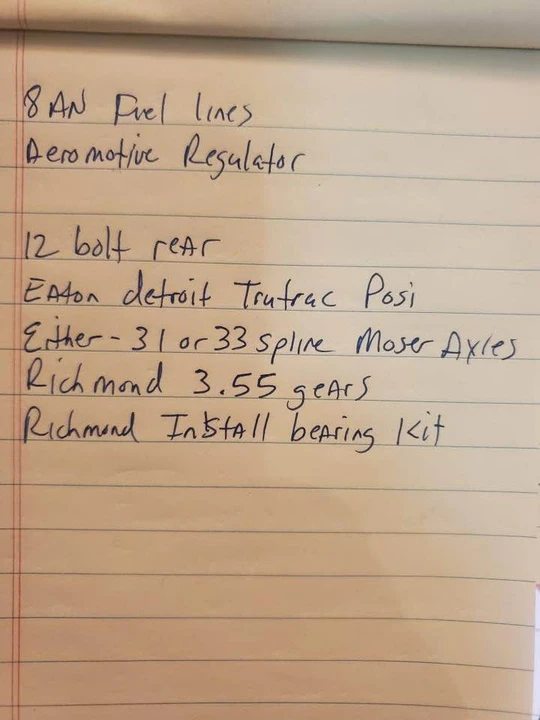 8 AN Fuel lines
Aeromotive Regulator
12 bolt reAr
EAton detroit Trutrac Posi
Either - 31 or 33 spline Moser Axles
Richmond 3.55 geArs
Richmond InstAll beAring Kit